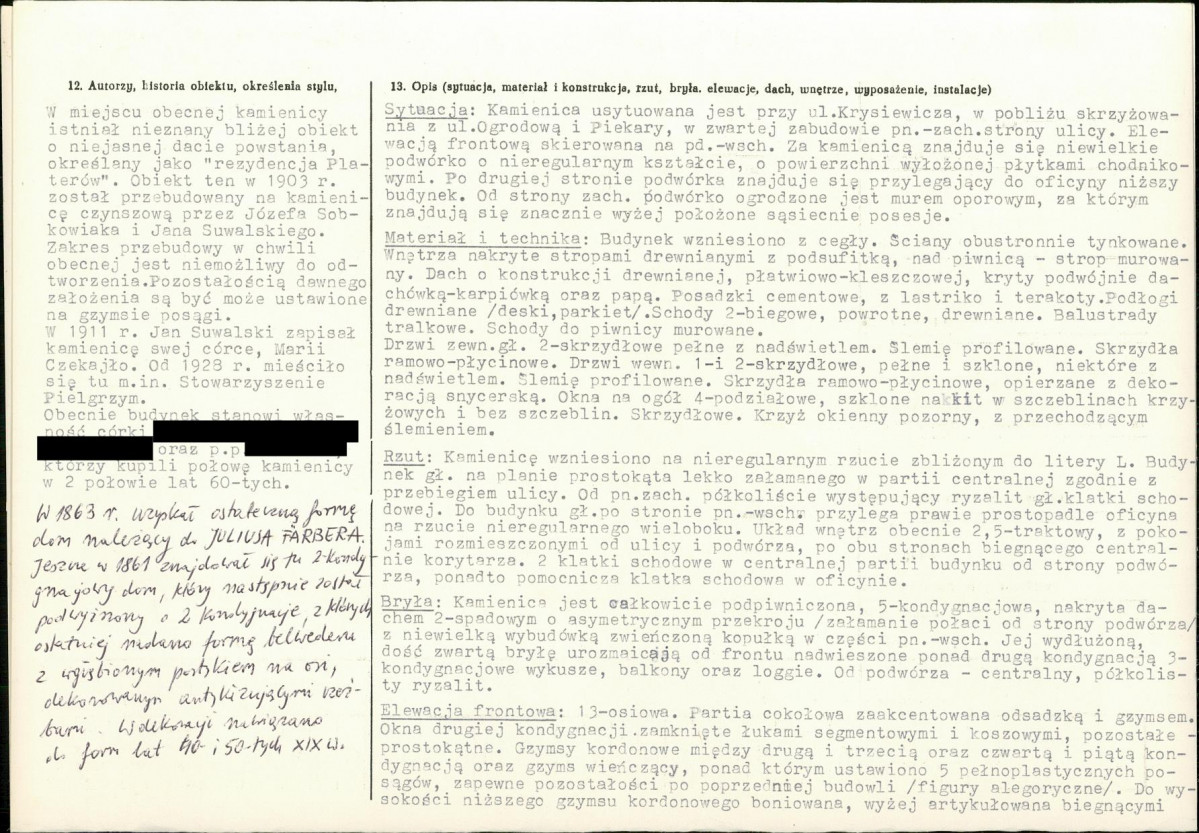 12. Autorzy, historia obiektu, określenia stylu,
W miejscu obecnej kamienicy
istniał nieznany bliżej obiekt
o niejasnej dacie powstania,
określany jako "rezydencja Pla-
terów". Obiekt ten w 1903 r.
został przebudowany na kamieni-
cę czynszową przez Józefa Sob-
kowiaka i Jana Suwalskiego.
Zakres przebudowy w chwili
obecnej jest niemożliwy do od-
tworzenia.Pozostałością dawnego
założenia są być może ustawione
na gzymsie posągi.
W 1911 r. Jan Suwalski zapisał
kamienicę swej córce, Marii
Czekajło. Od 1928 r. mieściło
się tu m.in. Stowarzyszenie
Pielgrzym.
Obecnie budynek stanowi włas-
ność córki
oraz p.p
którzy kupili połowę kamienicy
w 2 połowie lat 60-tych.
W 1863 r. uzyskał ostateczną formę
dom należący do JULIUSA FÄRBERA.
Jeszcze w 1861 znajdował się tu 2-kondy
gnacjowy dom, który następnie został
podwyższony o 2 kondygnacje, z których
ostatniej nadano formę belwederu
z wgłębionym portykiem na osi,
dekorowanym antykizującymi rzeź-
bami. W dekoracji nawiązano
do form lat 40- i 50-tych XIX w.
13. Opis (sytuacja, materiał i konstrukcja, rzut, bryła. elewacje, dach, wnętrze, wyposażenie, instalacje)
Sytuacja: Kamienica usytuowana jest przy ul.Krysiewicza, w pobliżu skrzyżowa-
nia z ul.Ogrodową i Piekary, w zwartej zabudowie pn.-zach.strony ulicy. Ele-
wacją frontową skierowana na pd.-wsch. Za kamienicą znajduje się niewielkie
podwórko o nieregularnym kształcie, o powierzchni wyłożonej płytkami chodniko-
wymi. Po drugiej stronie podwórka znajduje się przylegający do oficyny niższy
budynek. Od strony zach. podwórko ogrodzone jest murem oporowym, za którym
znajdują się znacznie wyżej położone sąsiecnie posesje.
Materiał i technika: Budynek wzniesiono z cegły. Ściany obustronnie tynkowane.
Wnętrza nakryte stropami drewnianymi z podsufitką, nad piwnicą - strop murowa-
ny. Dach o konstrukcji drewnianej, płatwiowo-kleszczowej, kryty podwójnie da-
chówką-karpiówką oraz papą. Posadzki cementowe, z lastriko i terakoty.Podłogi
drewniane /deski,parkiet/.Schody 2-biegowe, powrotne, drewniane. Balustrady
tralkowe. Schody do piwnicy murowane.
Drzwi zewn.gł. 2-skrzydłowe pełne z nadświetlem. Ślemię profilowane. Skrzydła
ramowo-płycinowe. Drzwi wewn. 1-i 2-skrzydłowe, pełne i szklone, niektóre z
nadświetlem. Ślemię profilowane. Skrzydła ramowo-płycinowe, opierzane z deko-
racją snycerską. Okna na ogół 4-podziałowe, szklone na kit w szczeblinach krzy-
żowych i bez szczeblin. Skrzydłowe. Krzyż okienny pozorny, z przechodzącym
ślemieniem.
Rzut: Kamienicę wzniesiono na nieregularnym rzucie zbliżonym do litery L. Budy-
nek gł. na planie prostokąta lekko załamanego w partii centralnej zgodnie z
przebiegiem ulicy. Od pn.zach. półkoliście występujący ryzalit gł.klatki scho-
dowej. Do budynku gł.po stronie pn.-wsch. przylega prawie prostopadle oficyna
na rzucie nieregularnego wieloboku. Układ wnętrz obecnie 2,5-traktowy, z poko-
jami rozmieszczonymi od ulicy i podwórza, po obu stronach biegnącego central-
nie korytarza. 2 klatki schodowe w centralnej partii budynku od strony podwó-
rza, ponadto pomocnicza klatka schodowa w oficynie.
Bryła: Kamienica jest całkowicie podpiwniczona, 5-kondygnacjowa, nakryta da-
chem 2-spadowym o asymetrycznym przekroju /załamanie połaci od strony podwórza/
z niewielką wybudówką zwieńczoną kopułką w części pn.-wsch. Jej wydłużoną,
dość zwartą bryłę urozmaicają od frontu nadwieszone ponad drugą kondygnacją 3-
kondygnacjowe wykusze, balkony oraz loggie. Od podwórza - centralny, półkolis-
ty ryzalit.
Elewacja frontowa: 13-osiowa. Partia cokołowa zaakcentowana odsadzką i gzymsem.
Okna drugiej kondygnacji.zamknięte łukami segmentowymi i koszowymi, pozostałe -
prostokątne. Gzymsy kordonowe między drugą i trzecią oraz czwartą i piątą kon-
dygnacją oraz gzyms wieńczący, ponad którym ustawiono 5 pełnoplastycznych po-
sągów, zapewne pozostałości po poprzedniej budowli /figury alegoryczne/. Do wy-
sokości niższego gzymsu kordonowego boniowana, wyżej artykułowana biegnącymi